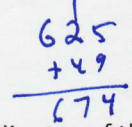 625
+49
674